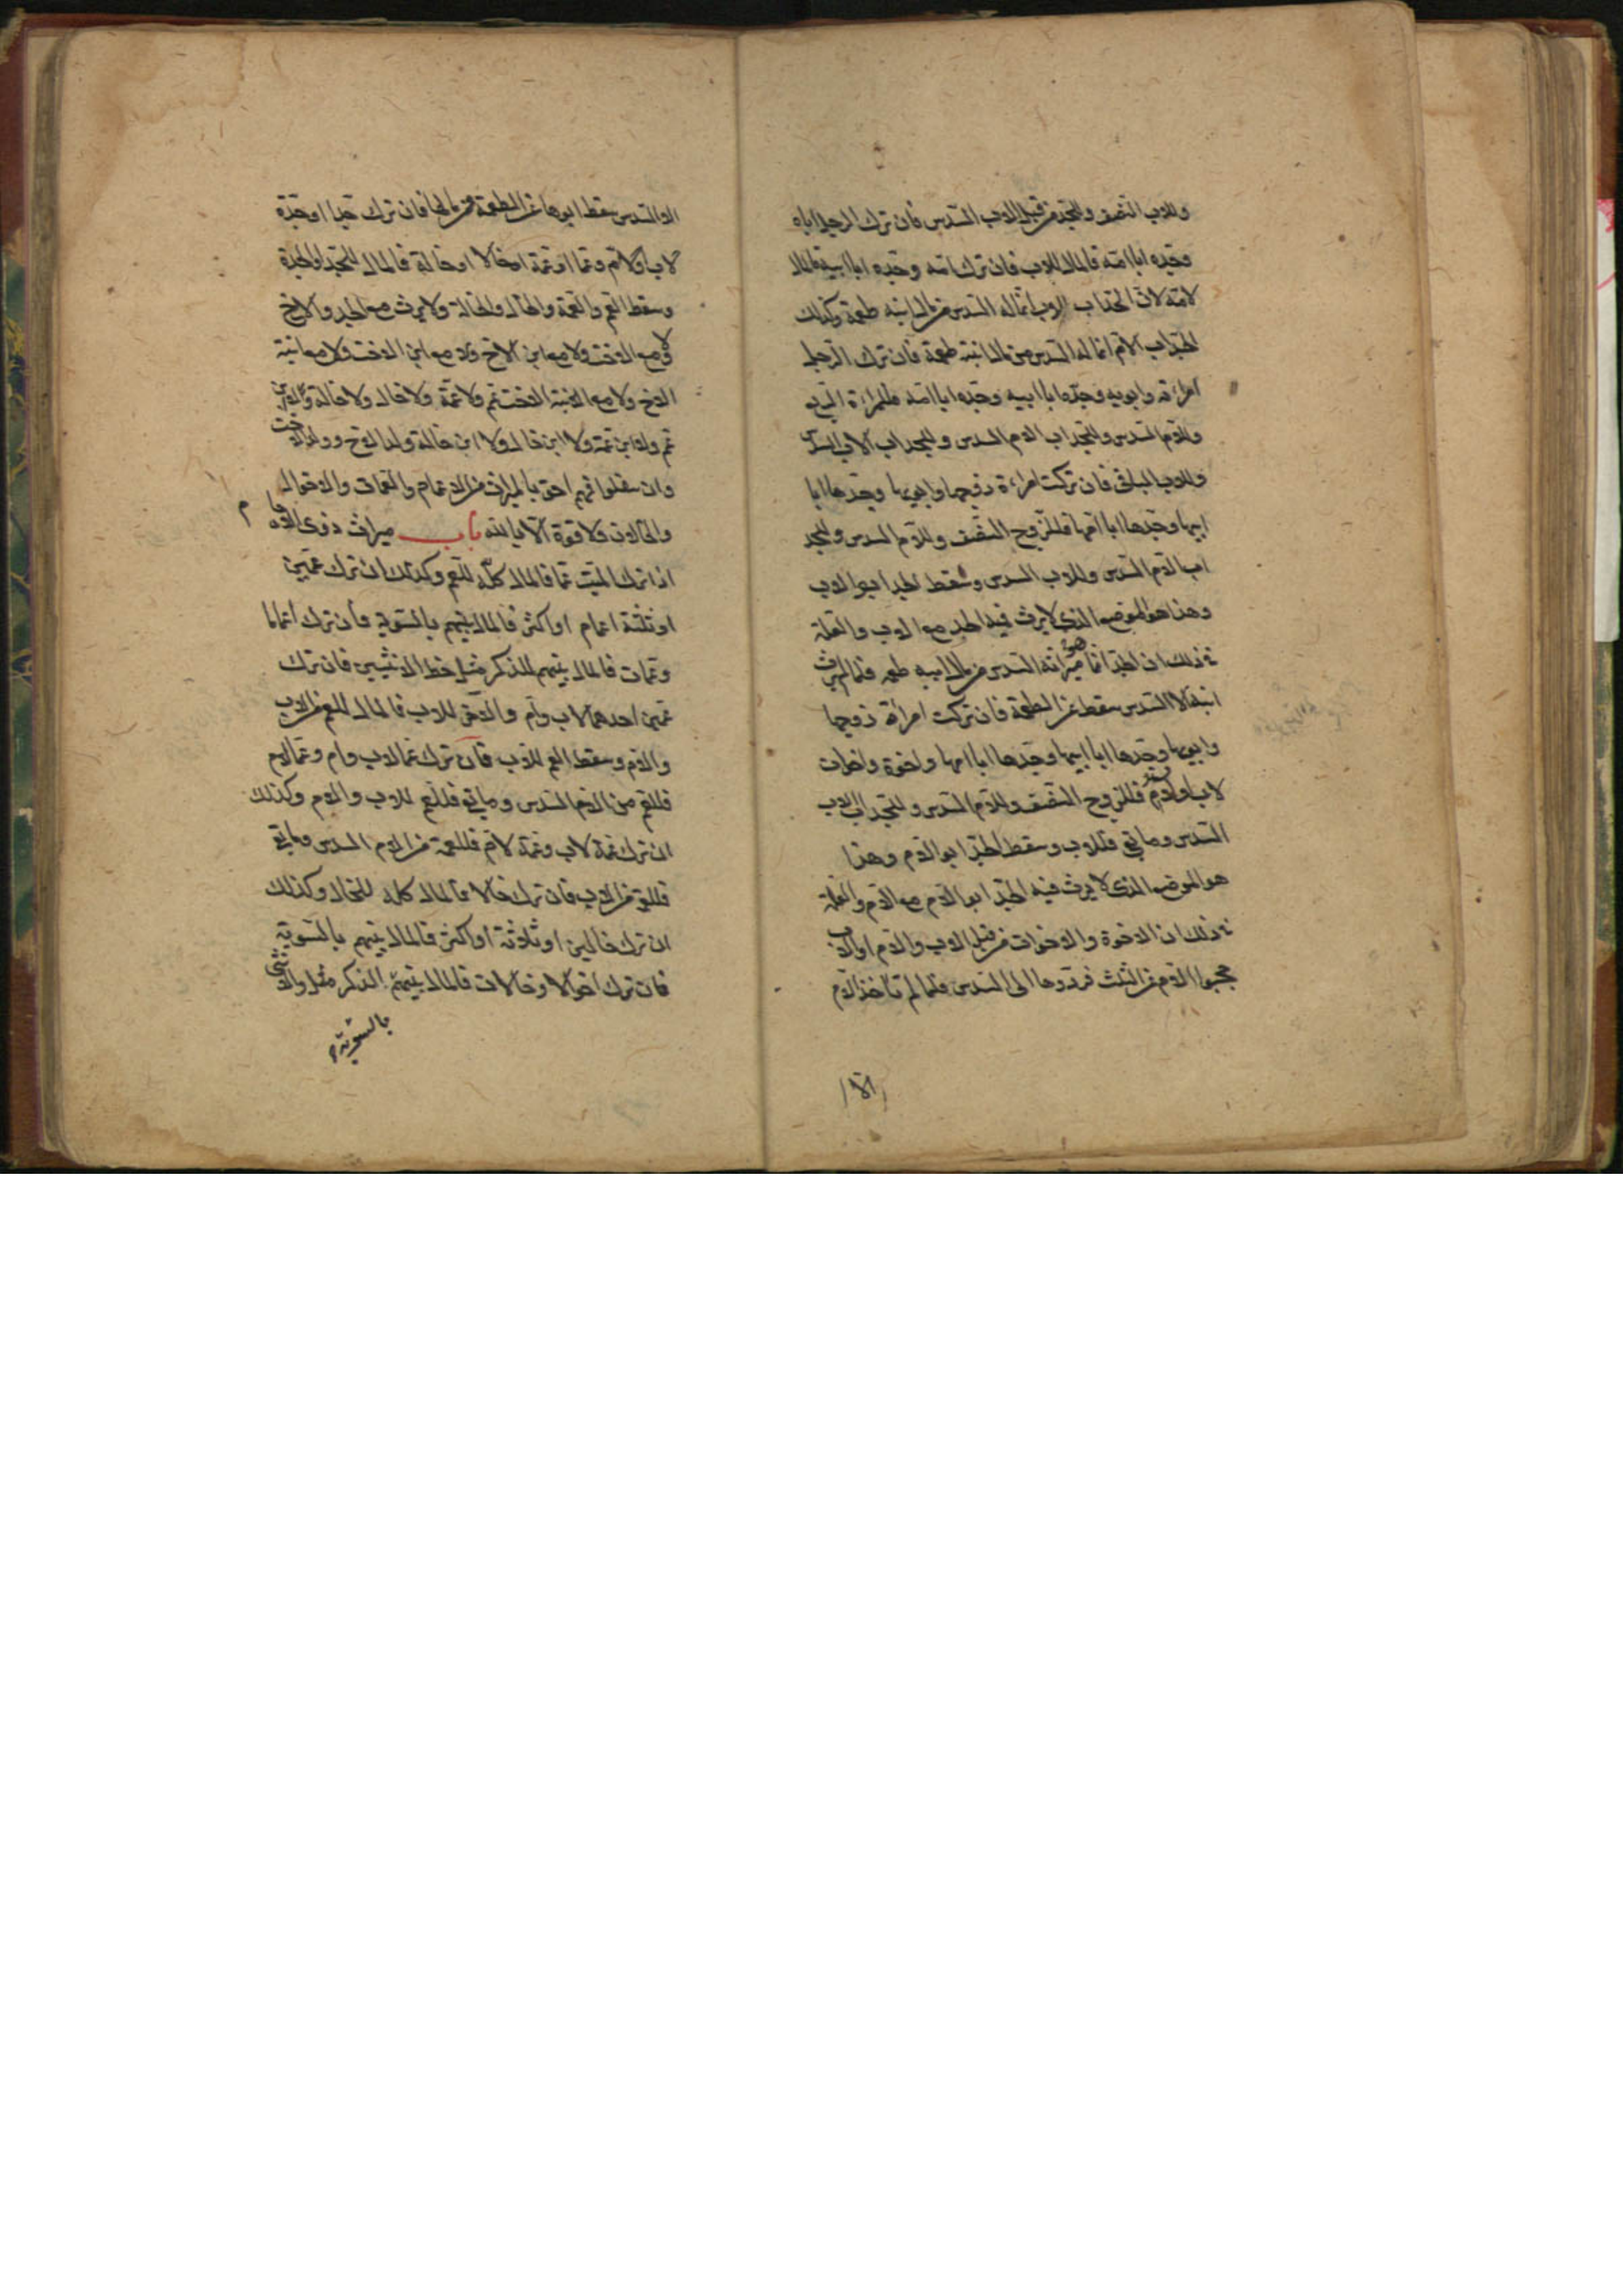 وللاب النصف وللجد من قبل الاب السدس فان ترك الرجل اباه
وجده ابا امه فالمال للاب فان ترك امه وجده ابا ابيه فالمال
لامه لان الجد اب الاب انما له السدس من مال ابنه طعمة وكذلك
الجد اب الام انما له السدس من مال ابنته طعمة فان ترك الرجل
امراءة وابويه وجده ابا ابيه وجده ابا امه فللمراءة الربع
وللام السدس وللجد اب الام السدس وللجد اب الاب السدس
وللاب الباقي فان تركت امراءة زوجها وابويها وجدها ابا
ابيها وجدها ابا امها فللزوج النصف وللام السدس وللجد
اب الام السدس وللاب السدس وسقط الجد ابو الاب
وهذا هو الموضع الذي لا يرث فيه الجد مع الاب والعلة
في ذلك ان الجد انما هو ميراثه السدس من مال ابنه طعمة فلما لم يرث
ابنه الا السدس سقط عن الطعمة فان تركت امرأة زوجها
وابويها وجدها ابا ابيها وجدها ابا امها واخوة واخوات
لاب او لاب وام فللزوج النصف وللام السدس وللجد اب الاب
السدس وما بقي فللاب وسقط الجد ابو الام وهذا
هو الموضع الذي لا يرث فيه الجد ابو الام مع الام والعلة
في ذلك ان الاخوة والاخوات من قبل الاب والام او الاب
حجبوا الام عن الثلث فردوها الى السدس فلما لم تأخذ الام
الا
الا السدس سقط ابوها عن الطعمة من مالها فان ترك جدا او جدة
لاب او لام وعما او عمة او خالا او خالة فالمال للجد او الجدة
وسقط العم والعمة والخال والخالة ولا يرث مع الجد والاخ
ولا مع الاخت ولا مع ابن الاخ ولا مع ابن الاخت ولا مع ابنة
الاخ ولا مع ابنة الاخت عم ولا عمة ولا خال ولا خالة ولا ابن
عم ولا ابن عمة ولا ابن خال ولا ابن خالة ولد الاخ وولد الاخت
وان سفلوا فهم احق بالميراث من الاعمام والعمات والاخوال
والخالات ولا قوة الا بالله باب ميراث ذوي الارحام
اذا ترك الميت عما فالمال كله للعم وكذلك ان ترك عمين
او ثلثة اعمام او اكثر فالمال بينهم بالسوية فان ترك اعماما
وعمات فالمال بينهم للذكر مثل حظ الانثيين فان ترك
عمين احدهما لاب وام والاخر للاب فالمال للعم من الاب
والام وسقط العم للاب فان ترك عما لاب وام وعما لام
فللعم من الام السدس وما بقي فللعم للاب والام وكذلك
ان ترك عمة لاب وعمة لام فللعمة من الام السدس وما بقي
فللتي من الاب فان ترك خالا فالمال كله للخال وكذلك
ان ترك خالين او ثلاثة او اكثر فالمال بينهم بالسوية
فان ترك اخوالا وخالات فالمال بينهم الذكر مثل والانثى
بالسوية